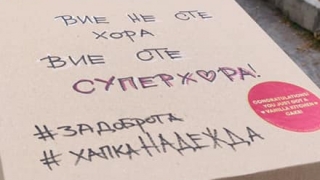 ВИЕ НЕ СТЕ
ХОРА
ВИЕ СТЕ
СУПЕРХОРА!
#ЗАДОБРОТА
#ХАПКАНАДЕЖДА
CONGRATULATIONS!
YOU JUST GOT A
VANILLA KITCHEN
CAKE!